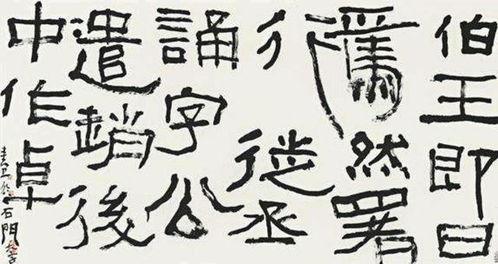 伯王即日
焉然署
行徙丞
誦字公
遣趙後
中作卓
石門